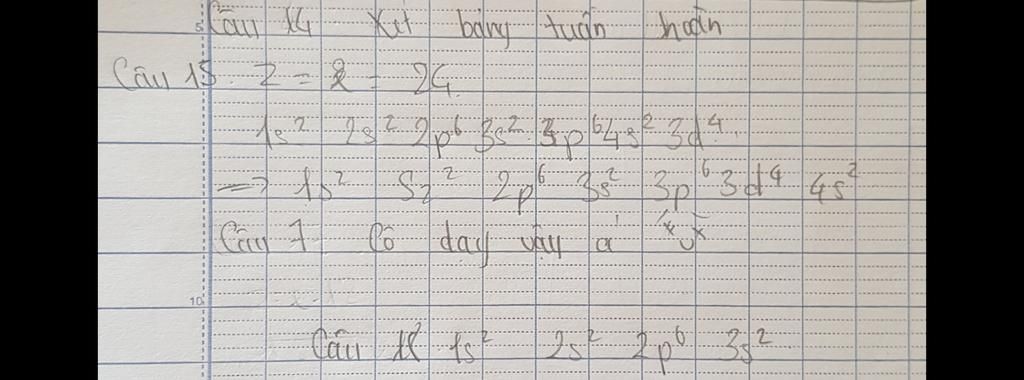 Câu 14 Xét bảng tuần hoàn
Câu 15. Z = 2 = 24.
1s² 2s² 2p⁶ 3s² 3p⁶ 4s² 3d⁴.
=> 1s² S2² 2p⁶ 3s² 3p⁶ 3d⁴ 4s²
Câu 7 Cô dạy vậy á
Câu 1s² 2s² 2p⁶ 3s²